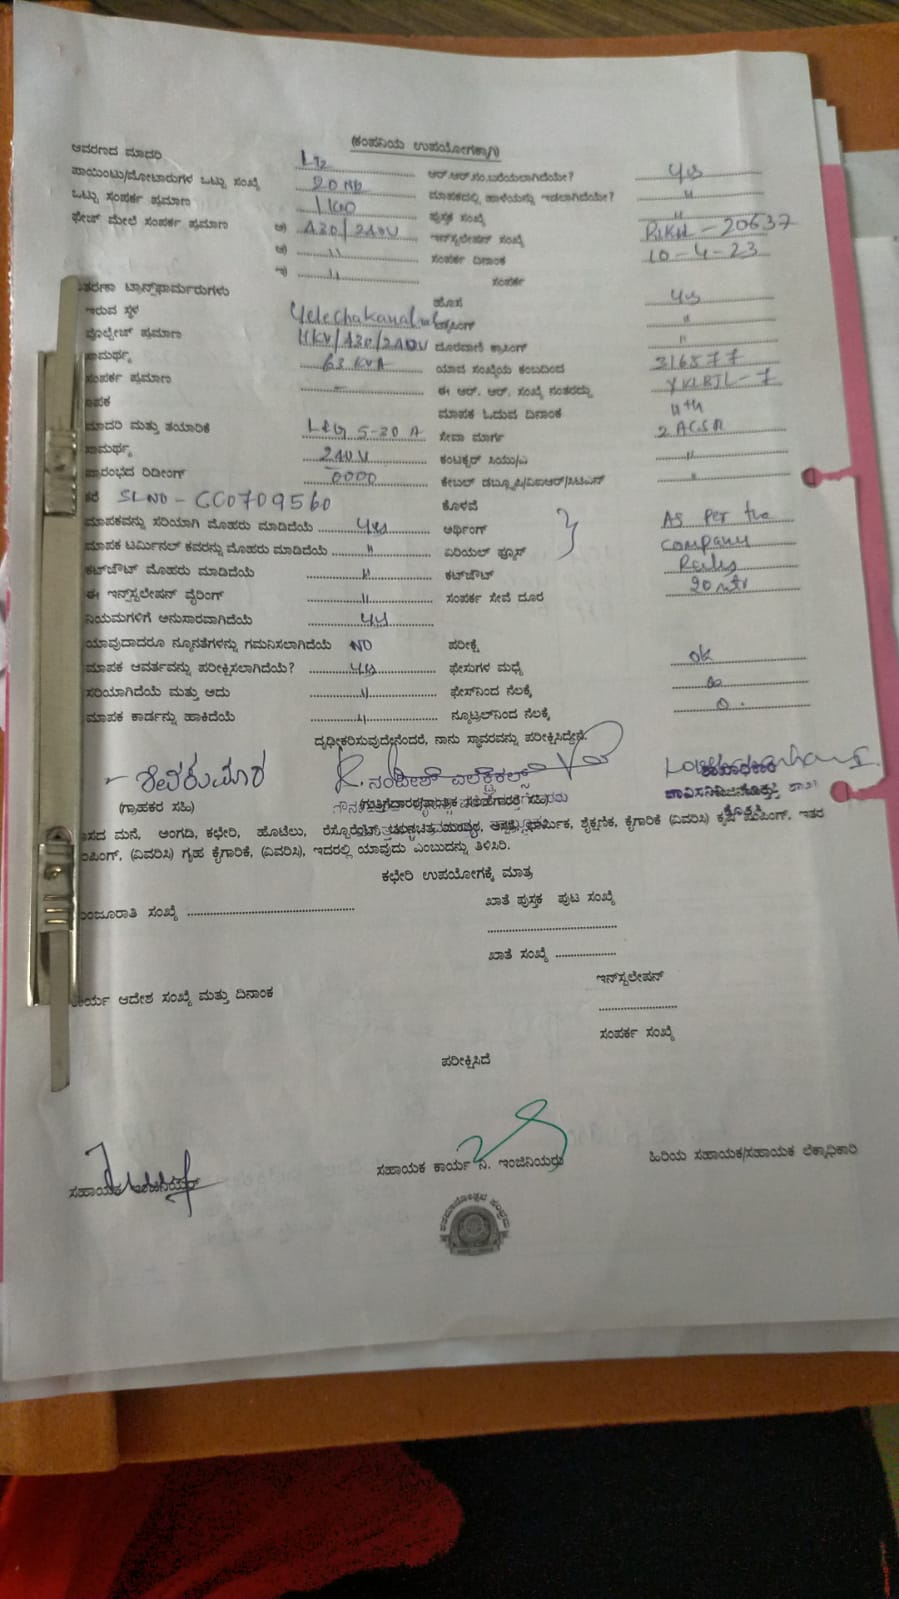 (ಕಂಪನಿಯ ಉಪಯೋಗಕ್ಕಾಗಿ)
ಆವರಣದ ಮಾದರಿ LT2 ಆರ್.ಆರ್.ಸಂ.ಬರೆಯಲಾಗಿದೆಯೇ? Yes
ಪಾಯಿಂಟು/ಮೋಟಾರುಗಳ ಒಟ್ಟು ಸಂಖ್ಯೆ 20 Nb ಮಾಪಕದಲ್ಲಿ ಹಾಳೆಯನ್ನು ಇಡಲಾಗಿದೆಯೇ? "
ಒಟ್ಟು ಸಂಪರ್ಕ ಪ್ರಮಾಣ 1 KW ಪುಸ್ತಕ ಸಂಖ್ಯೆ "
ಫೇಜ್ ಮೇಲೆ ಸಂಪರ್ಕ ಪ್ರಮಾಣ ಅ) 430/240V ಇನ್‌ಸ್ಟಲೇಷನ್ ಸಂಖ್ಯೆ - 20637
ಆ) " ಸಂಪರ್ಕ ದಿನಾಂಕ 10-4-23
ಇ) " ಸಂಪರ್ಕ
ತರಣಾ ಟ್ರಾನ್ಸ್‌ಫಾರ್ಮರುಗಳು ಹೊಸ Yes
ಇರುವ ಸ್ಥಳ Yelechakanahalli ಕ್ರಾಸಿಂಗ್ "
ವೋಲ್ಟೇಜ್ ಪ್ರಮಾಣ 11KV/430/240V ದೂರವಾಣಿ ಕ್ರಾಸಿಂಗ್ "
ಸಾಮರ್ಥ್ಯ 63 KVA ಯಾವ ಸಂಖ್ಯೆಯ ಕಂಬದಿಂದ 316577
ಸಂಪರ್ಕ ಪ್ರಮಾಣ - ಈ ಆರ್. ಆರ್. ಸಂಖ್ಯೆ ನಂತರದ್ದು - 7
ಾಪಕ ಮಾಪಕ ಓದುವ ದಿನಾಂಕ 11th
ಮಾದರಿ ಮತ್ತು ತಯಾರಿಕೆ L&G 5-30 A ಸೇವಾ ಮಾರ್ಗ 2 ACSR
ಸಾಮರ್ಥ್ಯ 240V ಕಂಟಕ್ಟರ್ ಸಿಯು/ಎ "
ಪ್ರಾರಂಭದ ರಿಡೀಂಗ್ 0000 ಕೇಬಲ್ ಡಬ್ಲ್ಯೂಪಿ/ವಿಐಆರ್/ಸಿಟಿಎಸ್ "
ಕರೆ SL NO - CC0709560 ಕೊಳವೆ
ಮಾಪಕವನ್ನು ಸರಿಯಾಗಿ ಮೊಹರು ಮಾಡಿದೆಯೆ Yes ಆರ್ಥಿಂಗ್ As per the
ಮಾಪಕ ಟರ್ಮಿನಲ್ ಕವರನ್ನು ಮೊಹರು ಮಾಡಿದೆಯೆ " ಏರಿಯಲ್ ಫ್ಯೂಸ್ company
ಕಟ್‌ಔಟ್ ಮೊಹರು ಮಾಡಿದೆಯೆ " ಕಟ್‌ಔಟ್ Rules
ಈ ಇನ್‌ಸ್ಟಲೇಷನ್ ವೈರಿಂಗ್ " ಸಂಪರ್ಕ ಸೇವೆ ದೂರ 20 mtr
ನಿಯಮಗಳಿಗೆ ಅನುಸಾರವಾಗಿದೆಯೆ Yes
ಯಾವುದಾದರೂ ನ್ಯೂನತೆಗಳನ್ನು ಗಮನಿಸಲಾಗಿದೆಯೆ NO ಪರೀಕ್ಷೆ
ಮಾಪಕ ಆವರ್ತವನ್ನು ಪರೀಕ್ಷಿಸಲಾಗಿದೆಯೆ? Yes ಫೇಸುಗಳ ಮಧ್ಯೆ ok
ಸರಿಯಾಗಿದೆಯೆ ಮತ್ತು ಅದು " ಫೇಸ್‌ನಿಂದ ನೆಲಕ್ಕೆ
ಮಾಪಕ ಕಾರ್ಡನ್ನು ಹಾಕಿದೆಯೆ " ನ್ಯೂಟ್ರಲ್‌ನಿಂದ ನೆಲಕ್ಕೆ
ದೃಢೀಕರಿಸುವುದೇನೆಂದರೆ, ನಾನು ಸ್ಥಾವರವನ್ನು ಪರೀಕ್ಷಿಸಿದ್ದೇನೆ.
ಶಿವಕುಮಾರ ನಂದೀಶ್ ಎಲೆಕ್ಟ್ರಿಕಲ್ಸ್
(ಗ್ರಾಹಕರ ಸಹಿ)
ಾಸದ ಮನೆ, ಅಂಗಡಿ, ಕಛೇರಿ, ಹೊಟೆಲು, ರೆಸ್ಟೊರೆಂಟ್, ಧಾರ್ಮಿಕ, ಶೈಕ್ಷಣಿಕ, ಕೈಗಾರಿಕೆ (ವಿವರಿಸಿ) ಕೃಷಿ ಪಂಪಿಂಗ್, ಇತರ
ಂಪಿಂಗ್, (ವಿವರಿಸಿ) ಗೃಹ ಕೈಗಾರಿಕೆ, (ವಿವರಿಸಿ), ಇದರಲ್ಲಿ ಯಾವುದು ಎಂಬುದನ್ನು ತಿಳಿಸಿರಿ.
ಕಛೇರಿ ಉಪಯೋಗಕ್ಕೆ ಮಾತ್ರ
ಂಜೂರಾತಿ ಸಂಖ್ಯೆ ಖಾತೆ ಪುಸ್ತಕ ಪುಟ ಸಂಖ್ಯೆ
ಖಾತೆ ಸಂಖ್ಯೆ
ಕಾರ್ಯ ಆದೇಶ ಸಂಖ್ಯೆ ಮತ್ತು ದಿನಾಂಕ ಇನ್‌ಸ್ಟಲೇಷನ್
ಸಂಪರ್ಕ ಸಂಖ್ಯೆ
ಪರೀಕ್ಷಿಸಿದೆ
ಸಹಾಯಕ ಇಂಜಿನಿಯರ್ ಸಹಾಯಕ ಕಾರ್ಯ ನಿ. ಇಂಜಿನಿಯರು ಹಿರಿಯ ಸಹಾಯಕ/ಸಹಾಯಕ ಲೆಕ್ಕಾಧಿಕಾರಿ